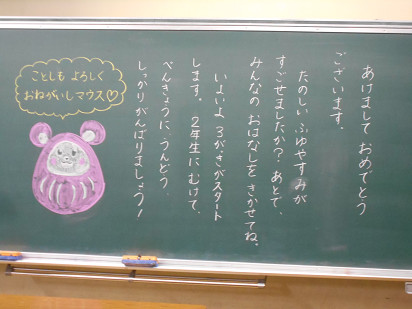 あけまして おめでとう
ございます。
たのしい ふゆやすみが
すごせましたか? あとで、
みんなの おはなしを きかせてね。
いよいよ 3がっきがスタート
します。 2年生に むけて、
べんきょうに、うんどう
しっかりがんばりましょう!
ことしも よろしく
おねがいしマウス♡